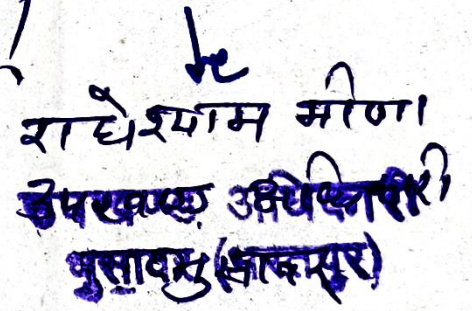 राधेश्याम मीणा
उपखण्ड अधिकारी
भुसावर (भरतपुर)